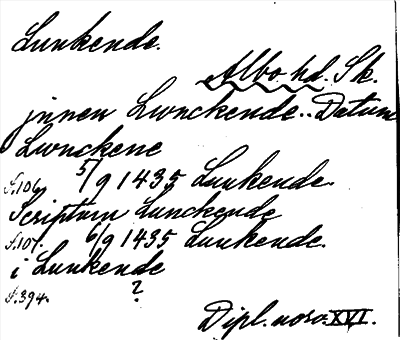 Lunkende.
Albo hd. Sk.
jnnen Lwnckende.. Datum
Lwnckene
s.106, 5/9 1435 Lunkende.
Scriptum lunckende
s.107. 6/9 1435 Lunkende.
i Lunkende
s.394. ?
Dipl. norv. XVI.